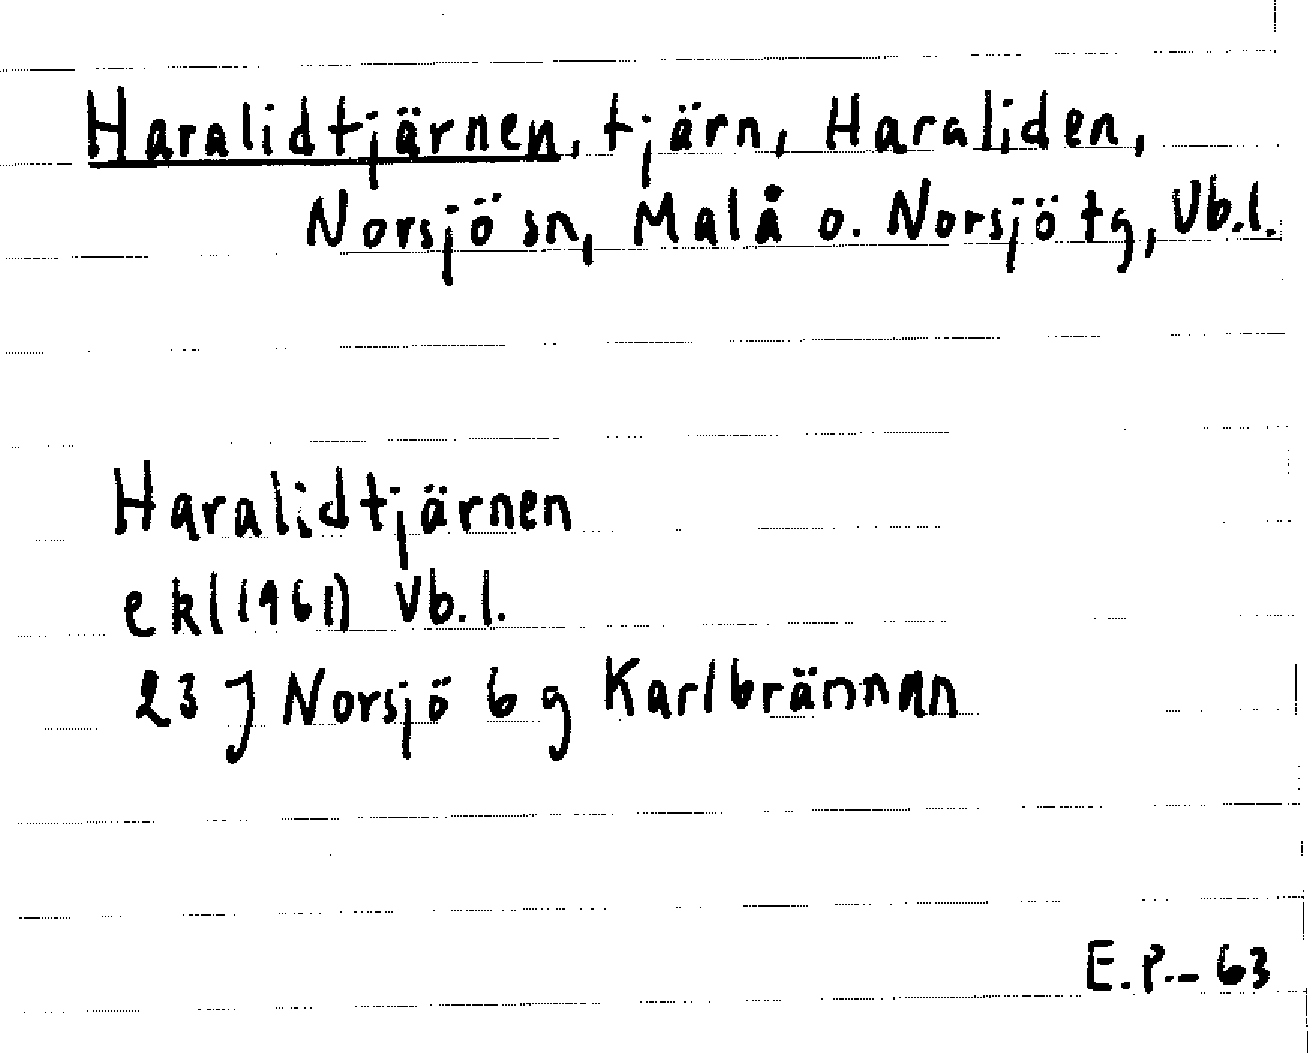 Haralidtjärnen, tjärn, Haraliden,
Norsjö sn, Malå o. Norsjö tg, Vb.l.
Haralidtjärnen
ek(1961) Vb.l.
23 J Norsjö 6 g Karlbrännan
E.P.-63